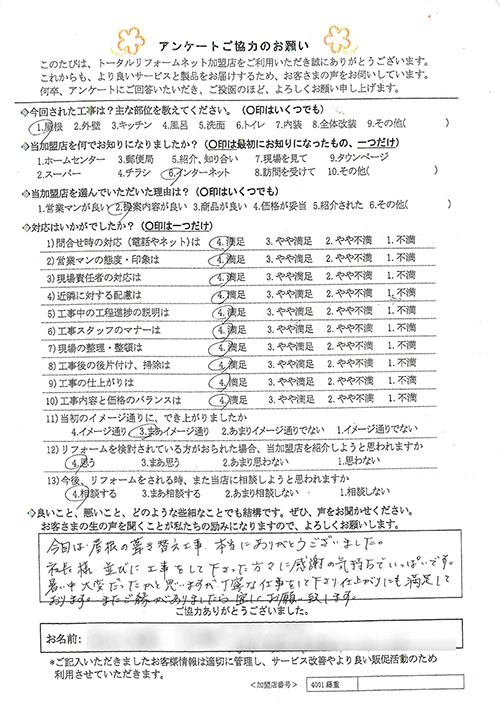 アンケートご協力のお願い
このたびは、トータルリフォームネット加盟店をご利用いただき誠にありがとうございます。
これからも、より良いサービスと製品をお届けするため、お客さまの声をお伺いしています。
何卒、アンケートにご回答いただき、ご投函のほど、よろしくお願い申し上げます。
◆今回された工事は?主な部位を教えてください。(〇印はいくつでも)
1.屋根 2.外壁 3.キッチン 4.風呂 5.洗面 6.トイレ 7.内装 8.全体改装 9.その他( )
◆当加盟店を何でお知りになりましたか?(〇印は最初にお知りになったもの、一つだけ)
1.ホームセンター 3.郵便局 5.紹介、知り合い 7.現場を見て 9.タウンページ
2.スーパー 4.チラシ 6.インターネット 8.訪問を受けて 10.その他( )
◆当加盟店を選んでいただいた理由は?(〇印はいくつでも)
1.営業マンが良い 2.提案内容が良い 3.商品が良い 4.価格が妥当 5.紹介された 6.その他( )
◆対応はいかがでしたか?(〇印は一つだけ)
1)問合せ時の対応(電話やネット)は 4.満足 3.やや満足 2.やや不満 1.不満
2)営業マンの態度・印象は 4.満足 3.やや満足 2.やや不満 1.不満
3)現場責任者の対応は 4.満足 3.やや満足 2.やや不満 1.不満
4)近隣に対する配慮は 4.満足 3.やや満足 2.やや不満 1.不満
5)工事中の工程進捗の説明は 4.満足 3.やや満足 2.やや不満 1.不満
6)工事スタッフのマナーは 4.満足 3.やや満足 2.やや不満 1.不満
7)現場の整理・整頓は 4.満足 3.やや満足 2.やや不満 1.不満
8)工事後の後片付け、掃除は 4.満足 3.やや満足 2.やや不満 1.不満
9)工事の仕上がりは 4.満足 3.やや満足 2.やや不満 1.不満
10)工事内容と価格のバランスは 4.満足 3.やや満足 2.やや不満 1.不満
11)当初のイメージ通りに、でき上がりましたか
4.イメージ通り 3.まあイメージ通り 2.あまりイメージ通りでない 1.イメージ通りでない
12)リフォームを検討されている方がおられた場合、当加盟店を紹介しようと思われますか
4.思う 3.まあ思う 2.あまり思わない 1.思わない
13)今後、リフォームをされる時、また当店に相談しようと思われますか
4.相談する 3.まあ相談する 2.あまり相談しない 1.相談しない
◆良いこと、悪いこと、どのような些細なことでも結構です。ぜひ、声をお聞かせください。
お客さまの生の声を聞くことが私たちの励みになりますので、よろしくお願いします。
今回は屋根の葺き替え工事 本当にありがとうございました。
社長様 並びに工事をして下さった方々に感謝の気持ちでいっぱいです。
暑い中大変だったかと思いますが丁寧な仕事をして下さり仕上がりにも満足して
おります。またご縁がありましたら宜しくお願い致します。
ご協力ありがとうございました。
お名前:
*ご記入いただきましたお客様情報は適切に管理し、サービス改善やより良い販促活動のため
利用させていただきます。
<加盟店番号> 4001藤重